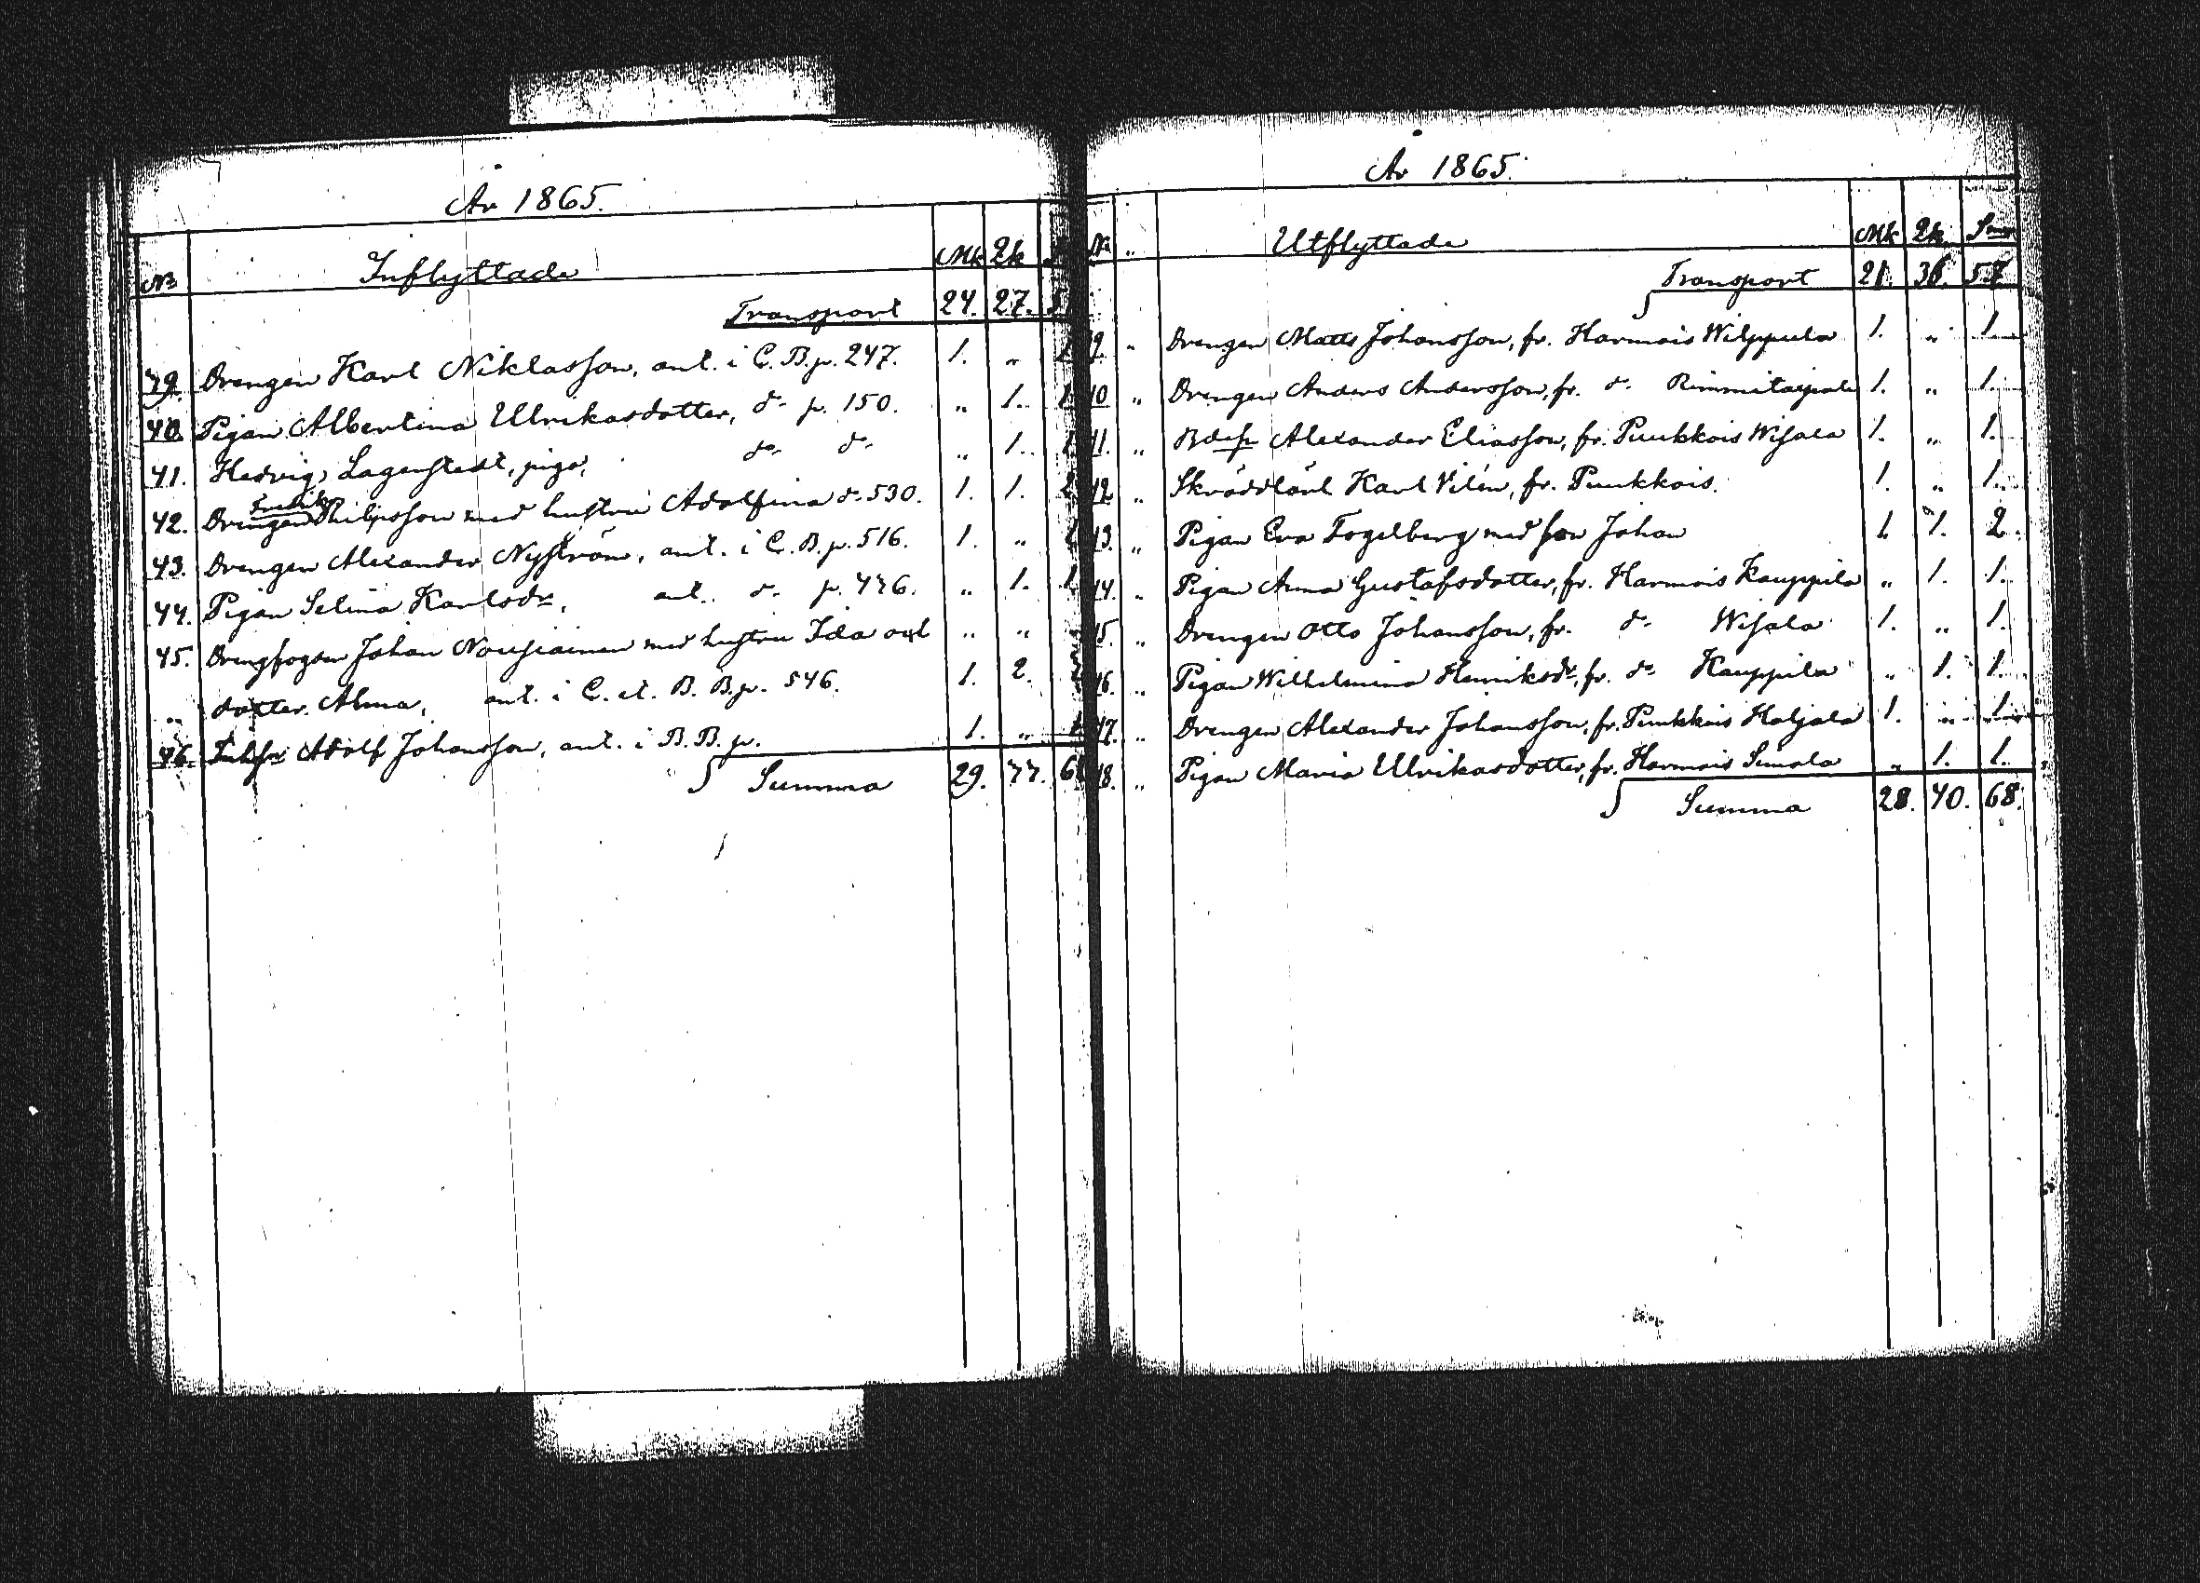 År 1865.
No Inflyttade Mk Qk
Transport 24. 27.
39. Drengen Karl Niklasson, ant. i C. B. p. 247. 1. „
40. Pigan Albertina Ulrikasdotter, do p. 150. „ 1. 1.
41. Hedvig Lagerstedt, piga, do do „ 1. 1.
42. Drengen Fredrik Philipsson med hustru Adolfina do 530. 1. 1. 2
43. Drengen Alexander Nyström, ant. i C. B. p. 516. 1. „
44. Pigan Selina Karlsdr, ant. do p. 476. „ 1. 1.
45. Drengfogden Johan Nousiainen med hustru Ida och „ „
„ dotter Alma, ant. i C. et. B. B. p. 546. 1. 2.
46. Adolf Johansson, ant. i B. B. p. 1. „
Summa 29. 77. 6
År 1865.
No „ Utflyttade Mk Qk. Sma
Transport 21. 36. 57.
9. „ Drengen Matts Johansson, fr. Harmois Wilppula 1. „ 1.
10 „ Drengen Anders Andersson, fr. do Rimmitaipale 1. „ 1.
11. „ Alexander Eliasson, fr. Puukkois Wisala 1. „ 1.
12 „ Skräddlärl Karl Vilén, fr. Puukkois. 1. „ 1.
13. „ Pigan Eva Fogelberg med son Johan 1. 1. 2.
14. „ Pigan Anna Gustafsdotter, fr. Harmois Kauppila „ 1. 1.
15. „ Drengen Otto Johansson, fr. do Wisala 1. „ 1.
16. „ Pigan Wilhelmina Henriksdr, fr. do Kauppila „ 1. 1.
17. „ Drengen Alexander Johansson, fr. Puukkois Haljala 1. „ 1.
18. „ Pigan Maria Ulrikasdotter, fr. Harmois Simola „ 1. 1.
Summa 28. 40. 68.